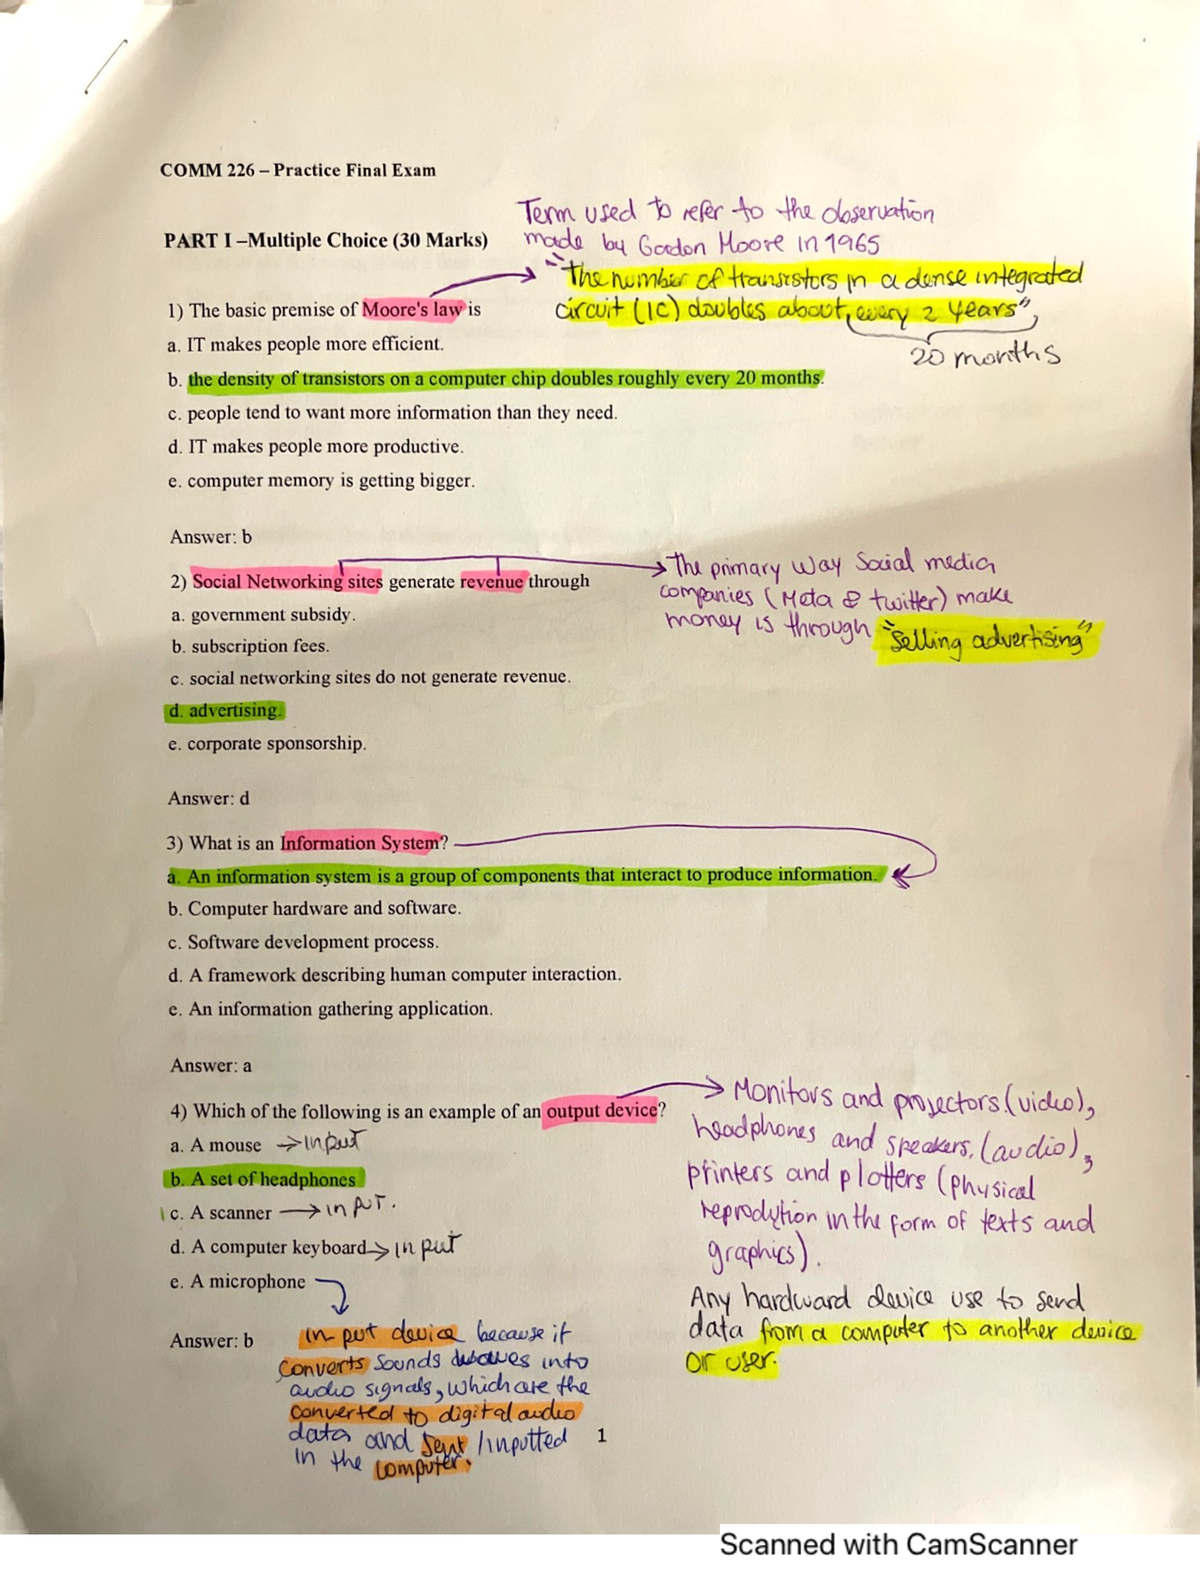 COMM 226 – Practice Final Exam
Term used to refer to the observation
PART I –Multiple Choice (30 Marks)
made by Gordon Moore in 1965
"the number of transistors in a dense integrated
circuit (IC) doubles about, every 2 years",
20 months
1) The basic premise of Moore's law is
a. IT makes people more efficient.
b. the density of transistors on a computer chip doubles roughly every 20 months.
c. people tend to want more information than they need.
d. IT makes people more productive.
e. computer memory is getting bigger.
Answer: b
2) Social Networking sites generate revenue through
The primary way Social media
companies (Meta & twitter) make
money is through "selling advertising"
a. government subsidy.
b. subscription fees.
c. social networking sites do not generate revenue.
d. advertising.
e. corporate sponsorship.
Answer: d
3) What is an Information System?
a. An information system is a group of components that interact to produce information.
b. Computer hardware and software.
c. Software development process.
d. A framework describing human computer interaction.
e. An information gathering application.
Answer: a
4) Which of the following is an example of an output device?
a. A mouse → input
b. A set of headphones
c. A scanner → input.
d. A computer keyboard → input
e. A microphone
Monitors and projectors (video),
headphones and speakers, (audio),
printers and plotters (physical
reprodution in the form of texts and
graphics).
Any hardward device use to send
data from a computer to another device
or user.
Answer: b
in put device because it
converts sounds into
audio signals, which are the
converted to digital audio
data and sent /inputted
in the computer.
1
Scanned with CamScanner